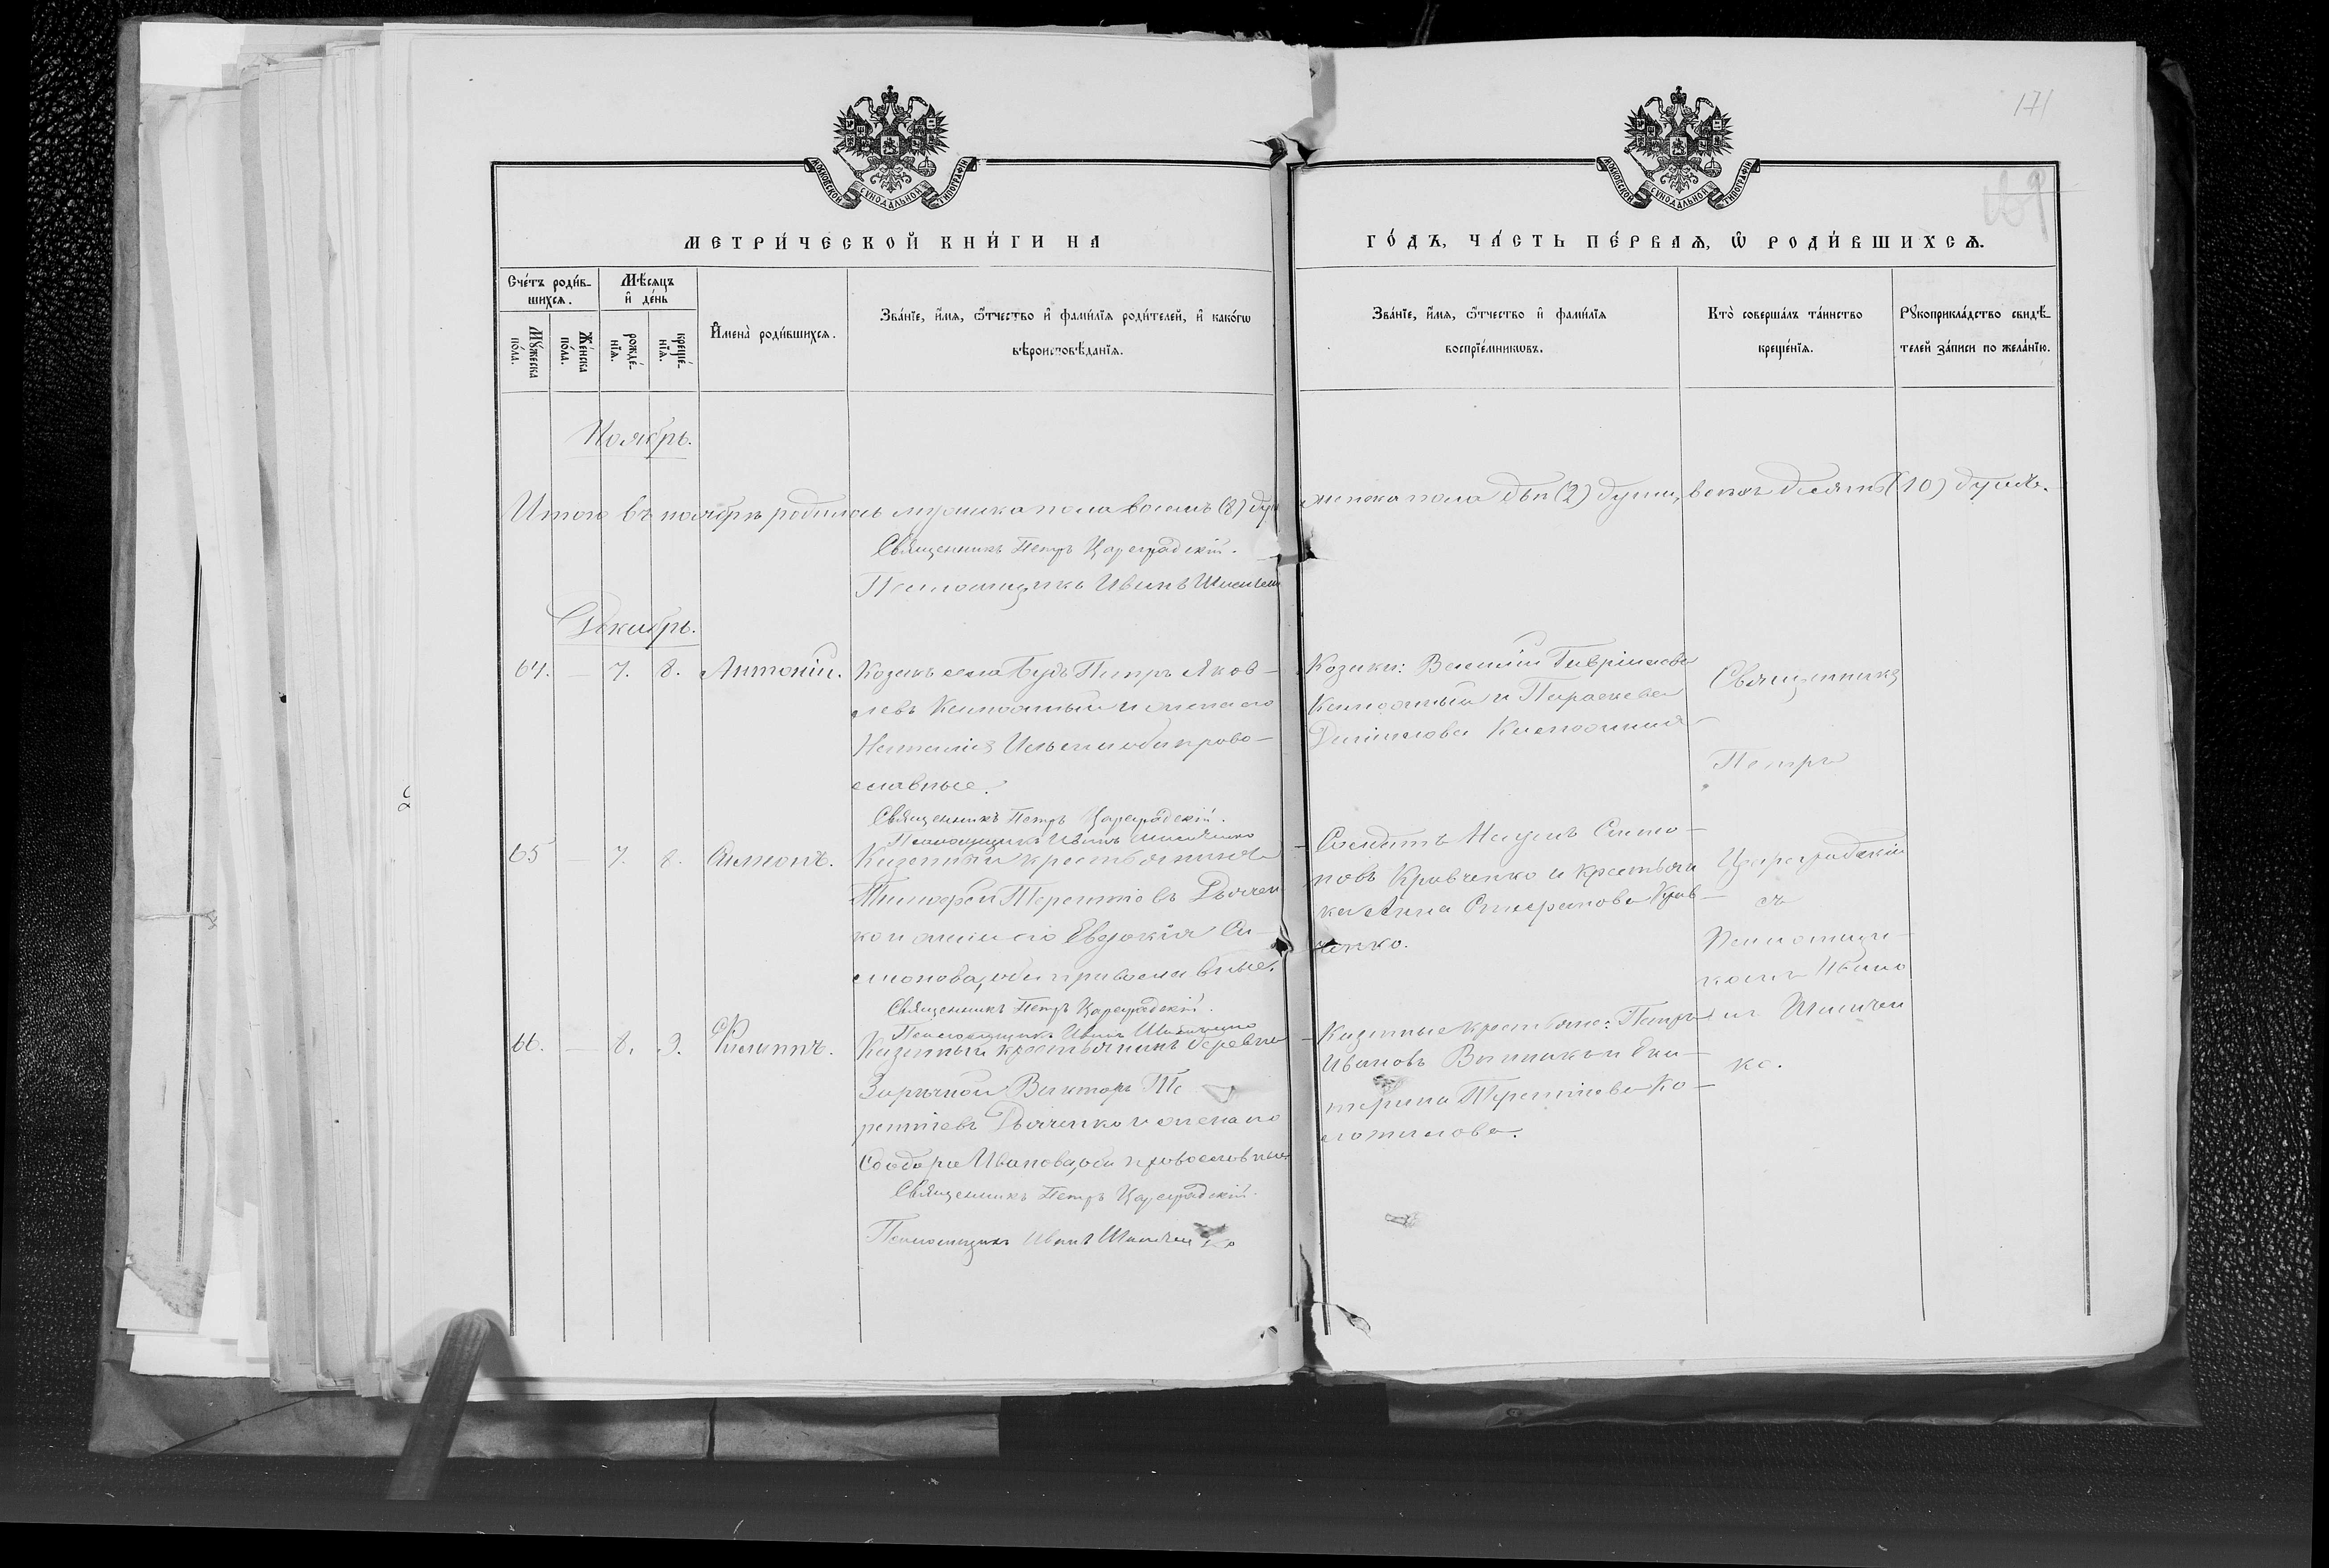 171
МОСКОВСКОЙ СѴНОДАЛЬНОЙ ТИПОГРАФІИ
МОСКОВСКОЙ СѴНОДАЛЬНОЙ ТИПОГРАФІИ
МЕТРИ́ЧЕСКОЙ КНИ́ГИ НА
ГО́ДЪ, ЧА́СТЬ ПЕ́РВАѦ, Ѽ РОДИ́ВШИХСѦ.
Сче́тъ роди́в-
шихсѧ.
Мꙋ́жеска
по́ла.
Же́нска
по́ла.
Мѣ́сѧцъ
и҆ де́нь
рожде́-
нїѧ.
креще́-
нїѧ.
И҆мена̀ роди́вшихсѧ.
Зва́нїе, и҆́мѧ, ѻ҆́тчество и҆ фами́лїѧ роди́телей, и҆ како́гѡ
вѣроисповѣ́данїѧ.
Зва́нїе, и҆́мѧ, ѻ҆́тчество и҆ фами́лїѧ
воспрїе́мникѡвъ.
Кто̀ соверша́лъ та́инство
креще́нїѧ.
Рꙋкоприкла́дство свидѣ́-
телей за́писи по жела́нїю.
Ноябрь.
Итого въ ноябрѣ родилось мужеска пола восемь (8) душ
женска пола двѣ (2) души, всехъ десять (10) душъ.
Священникъ Петръ Цареградскій.
Помощникъ Иванъ
Декабрь.
64. — 7. 8. Антоній.
Козакъ села Будъ Петръ Яков-
левъ и жена его
Наталія Ильина оба право-
славные.
Козаки: Василій Гавріиловъ
и Параскева
Даниилова
Священникъ
Петръ
Цареградскій
съ
Помощни-
комъ Ивано
мъ
ко.
Священникъ Петръ Цареградскій.
Помощникъ Иванъ
65 — 7. 8. Симонъ.
Казенный крестьянинъ
Тимофей Терентіевъ Дьячен
ко и жена его Евдокія Си-
монова, оба православные.
Солдатъ Наумъ Симо-
новъ Кравченко и крестьян
ка Анна Кравченко.
Священникъ Петръ Цареградскій.
Помощникъ Иванъ
66. — 8. 9. Филиппъ.
Казенный крестьянинъ деревни
Заричной Викторъ Те
рентіевъ Дьяченко и жена его
Ѳеодора Иванова, оба православные
Казенные крестьяне: Петръ
Ивановъ Винникъ и Ека-
терина Терентіева Ко-
Священникъ Петръ Цареградскій.
Помощникъ Иванъ